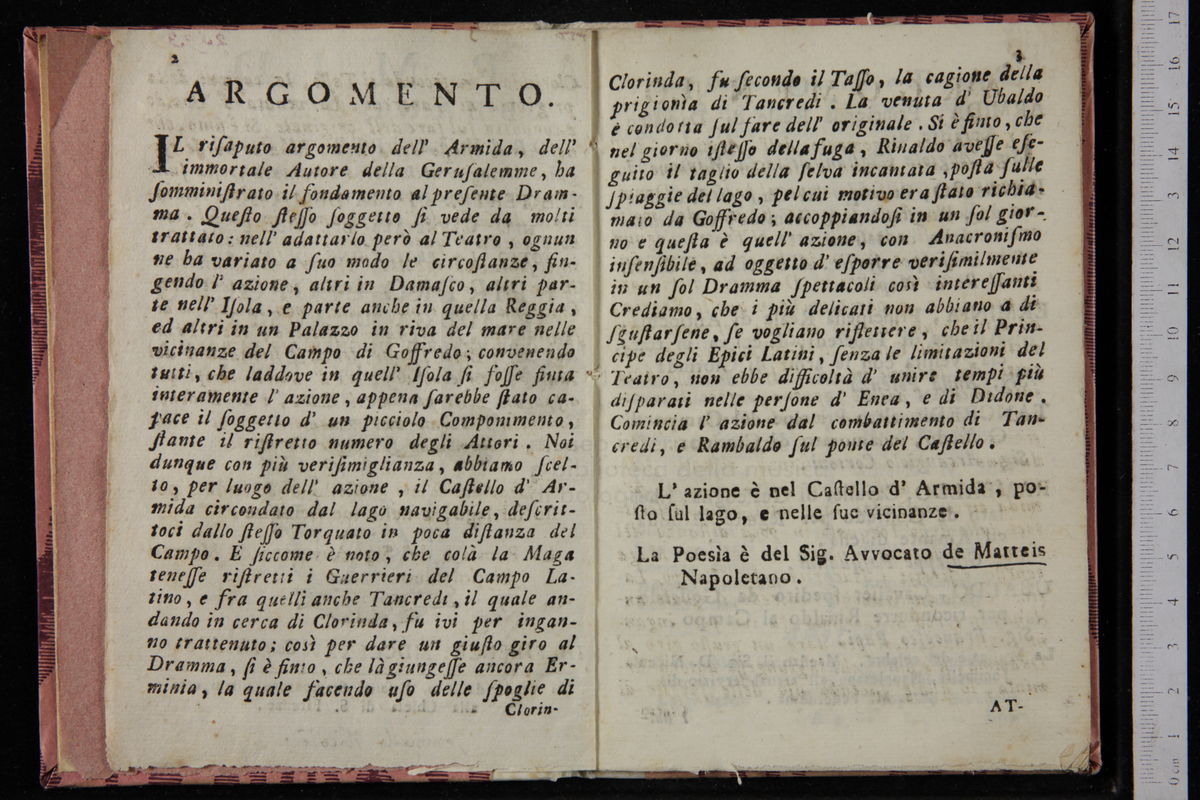 2
ARGOMENTO.
IL riſaputo argomento dell' Armida, dell'
immortale Autore della Geruſalemme, ha
ſomminiſtrato il fondamento al preſente Dram-
ma. Queſto ſteſſo ſoggetto ſi vede da molti
trattato: nell' adattarlo però al Teatro, ognun
ne ha variato a ſuo modo le circoſtanze, fin-
gendo l' azione, altri in Damaſco, altri par-
te nell' Iſola, e parte anche in quella Reggia,
ed altri in un Palazzo in riva del mare nelle
vicinanze del Campo di Goffredo; convenendo
tutti, che laddove in quell' Iſola ſi foſſe finta
interamente l' azione, appena ſarebbe ſtato ca-
pace il ſoggetto d' un picciolo Componimento,
ſtante il riſtretto numero degli Attori. Noi
dunque con più veriſimiglianza, abbiamo ſcel-
to, per luogo dell' azione, il Caſtello d' Ar-
mida circondato dal lago navigabile, deſcrit-
toci dallo ſteſſo Torquato in poca diſtanza del
Campo. E ſiccome è noto, che colà la Maga
teneſſe riſtretti i Guerrieri del Campo La-
tino, e fra quelli anche Tancredi, il quale an-
dando in cerca di Clorinda, fu ivi per ingan-
no trattenuto; così per dare un giuſto giro al
Dramma, ſi è finto, che là giungeſſe ancora Er-
minia, la quale facendo uſo delle ſpoglie di
Clorin-
3
Clorinda, fu ſecondo il Taſſo, la cagione della
prigionìa di Tancredi. La venuta d' Ubaldo
è condotta ſul fare dell' originale. Si è finto, che
nel giorno iſteſſo della fuga, Rinaldo aveſſe eſe-
guito il taglio della ſelva incantata, poſta ſulle
ſpiaggie del lago, pel cui motivo era ſtato richia-
mato da Goffredo; accoppiandoſi in un ſol gior-
no e queſta è quell' azione, con Anacroniſmo
inſenſibile, ad oggetto d' eſporre veriſimilmente
in un ſol Dramma ſpettacoli così intereſſanti
Crediamo, che i più delicati non abbiano a di
ſguſtarſene, ſe vogliano riflettere, che il Prin-
cipe degli Epici Latini, ſenza le limitazioni del
Teatro, non ebbe difficoltà d' unire tempi più
diſparati nelle perſone d' Enea, e di Didone.
Comincia l' azione dal combattimento di Tan-
credi, e Rambaldo ſul ponte del Caſtello.
L' azione è nel Caſtello d' Armida, po-
ſto ſul lago, e nelle ſue vicinanze.
La Poesìa è del Sig. Avvocato de Matteis
Napoletano.
AT-
0 cm 1 2 3 4 5 6 7 8 9 10 11 12 13 14 15 16 17